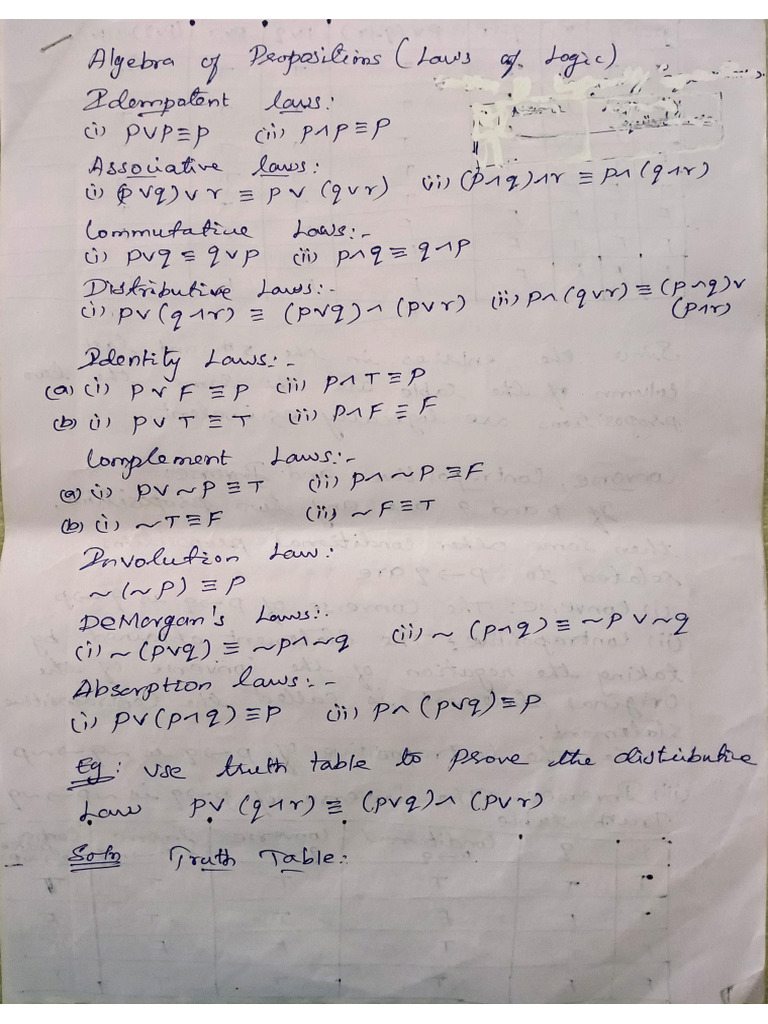 Algebra of Propositions (Laws of Logic)
Idempotent laws:
(i) p∨p≡p (ii) p∧p≡p
Associative laws:
(i) (p∨q)∨r ≡ p∨(q∨r) (ii) (p∧q)∧r ≡ p∧(q∧r)
Commutative Laws:-
(i) p∨q ≡ q∨p (ii) p∧q ≡ q∧p
Distributive Laws:-
(i) p∨(q∧r) ≡ (p∨q)∧(p∨r) (ii) p∧(q∨r) ≡ (p∧q)∨
(p∧r)
Identity Laws:-
(a) (i) p∨F ≡ p (ii) p∧T ≡ p
(b) (i) p∨T ≡ T (ii) p∧F ≡ F
Complement Laws:-
(a) (i) p∨~p ≡ T (ii) p∧~p ≡ F
(b) (i) ~T≡F (ii) ~F≡T
Involution Law:
~(~p) ≡ p
DeMorgan's Laws:
(i) ~(p∨q) ≡ ~p∧~q (ii) ~(p∧q) ≡ ~p∨~q
Absorption laws:-
(i) p∨(p∧q) ≡ p (ii) p∧(p∨q) ≡ p
Eg: Use truth table to prove the distributive
Law p∨(q∧r) ≡ (p∨q)∧(p∨r)
Soln Truth Table: